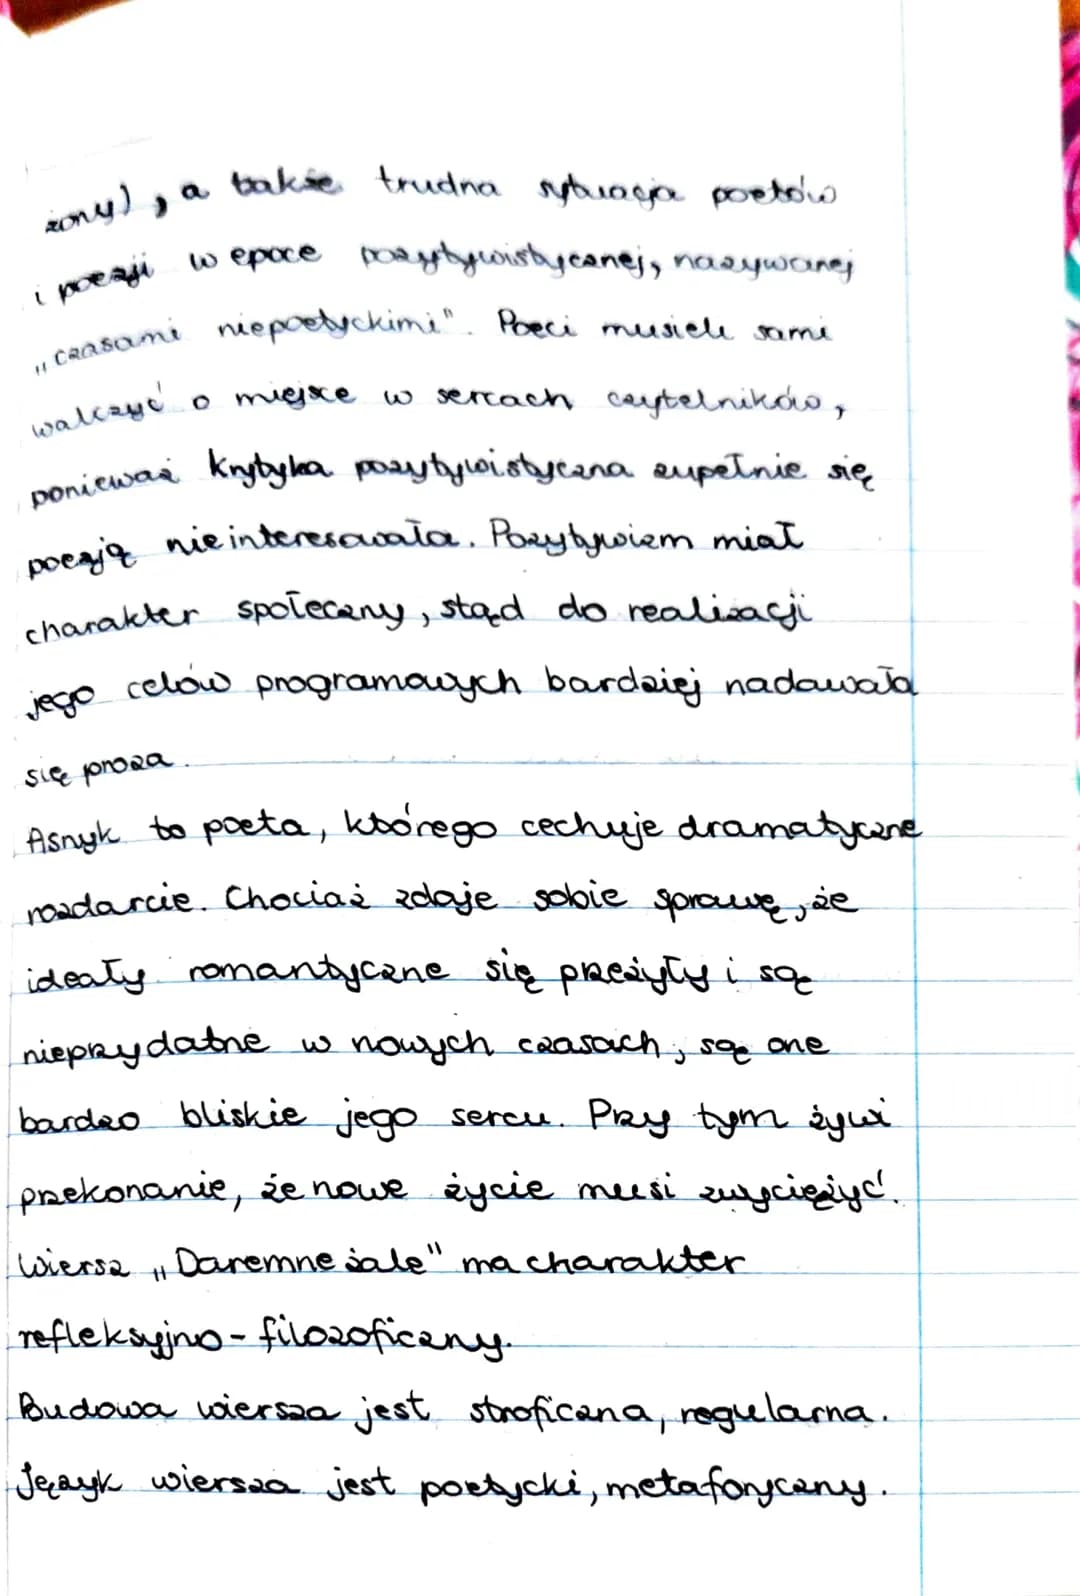 żony), a także trudna sytuacja poetów
i poezji w epoce pozytywistycznej, nazywanej
„czasami niepoetyckimi". Poeci musieli sami
walczyć o miejsce w sercach czytelników,
ponieważ krytyka pozytywistyczna zupełnie się
poezją nie interesowała. Pozytywizm miał
charakter społeczny, stąd do realizacji
jego celów programowych bardziej nadawała
się proza.
Asnyk to poeta, którego cechuje dramatyczne
rozdarcie. Chociaż zdaje sobie sprawę, że
ideały romantyczne się przeżyły i są
nieprzydatne w nowych czasach, są one
bardzo bliskie jego sercu. Przy tym żywi
przekonanie, że nowe życie musi zwyciężyć.
Wiersz „Daremne żale" ma charakter
refleksyjno-filozoficzny.
Budowa wiersza jest stroficzna, regularna.
Język wiersza jest poetycki, metaforyczny.